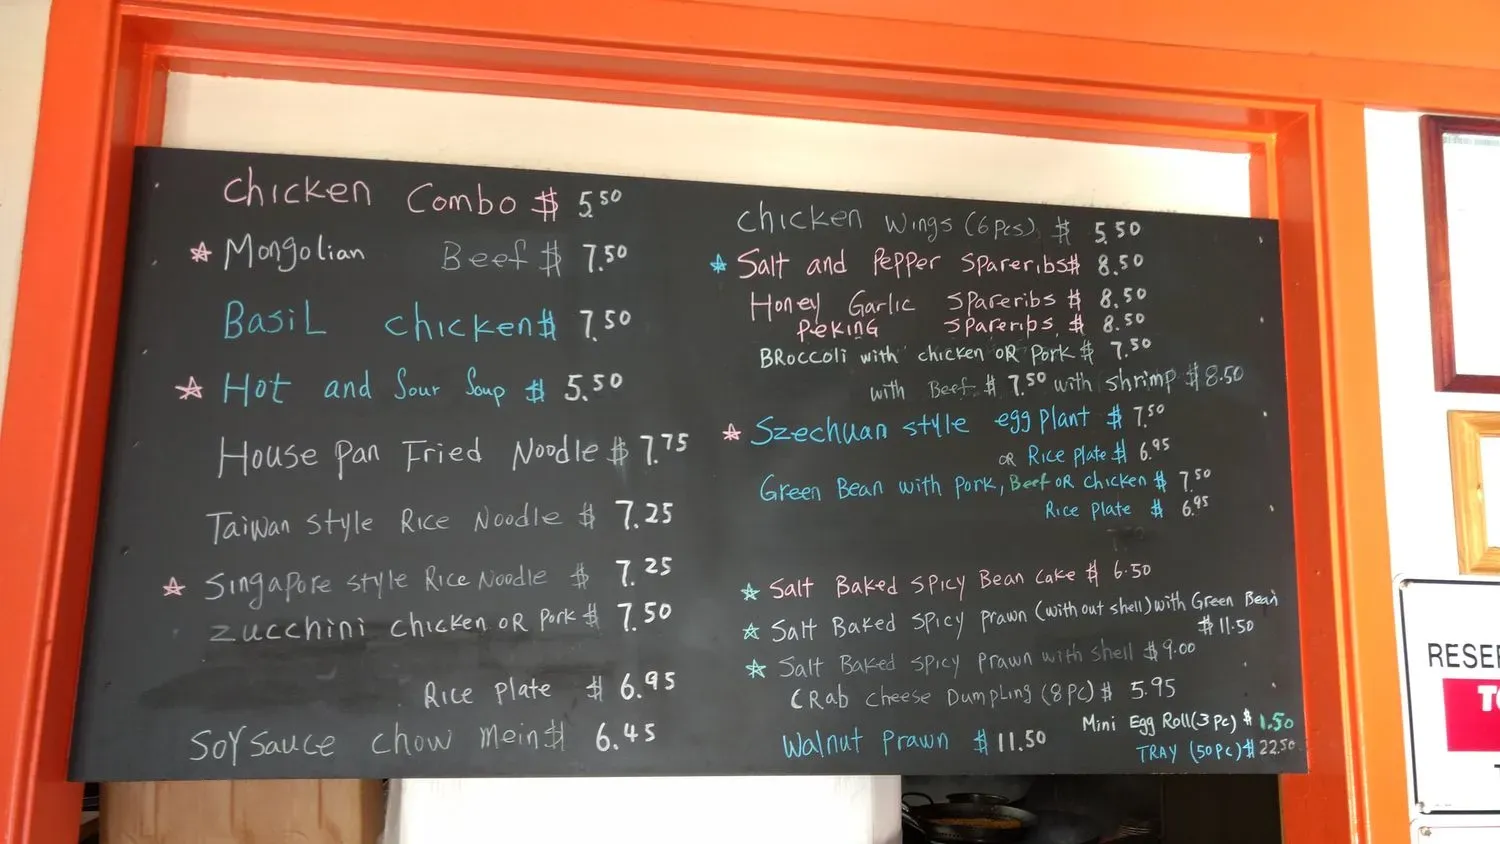 Chicken Combo $ 5.50
☆ Mongolian Beef $ 7.50
Basil Chicken $ 7.50
☆ Hot and Sour Soup $ 5.50
House Pan Fried Noodle $ 7.75
Taiwan Style Rice Noodle $ 7.25
☆ Singapore Style Rice Noodle $ 7.25
Zucchini Chicken OR Pork $ 7.50
Rice Plate $ 6.95
Soy Sauce Chow Mein $ 6.45
Chicken Wings (6 Pcs) $ 5.50
☆ Salt and Pepper Spareribs $ 8.50
Honey Garlic Spareribs $ 8.50
Peking Spareribs $ 8.50
Broccoli with chicken OR Pork $ 7.50
with Beef $ 7.50 with shrimp $ 8.50
☆ Szechuan style egg plant $ 7.50
OR Rice Plate $ 6.95
Green Bean with Pork, Beef OR Chicken $ 7.50
Rice Plate $ 6.95
☆ Salt Baked Spicy Bean Cake $ 6.50
☆ Salt Baked Spicy Prawn (with out shell) with Green Bean
$ 11.50
☆ Salt Baked Spicy Prawn with shell $ 9.00
Crab Cheese Dumpling (8 Pc) $ 5.95
Mini Egg Roll (3 Pc) $ 1.50
Walnut Prawn $ 11.50
TRAY (50 Pc) $ 22.50
RESE